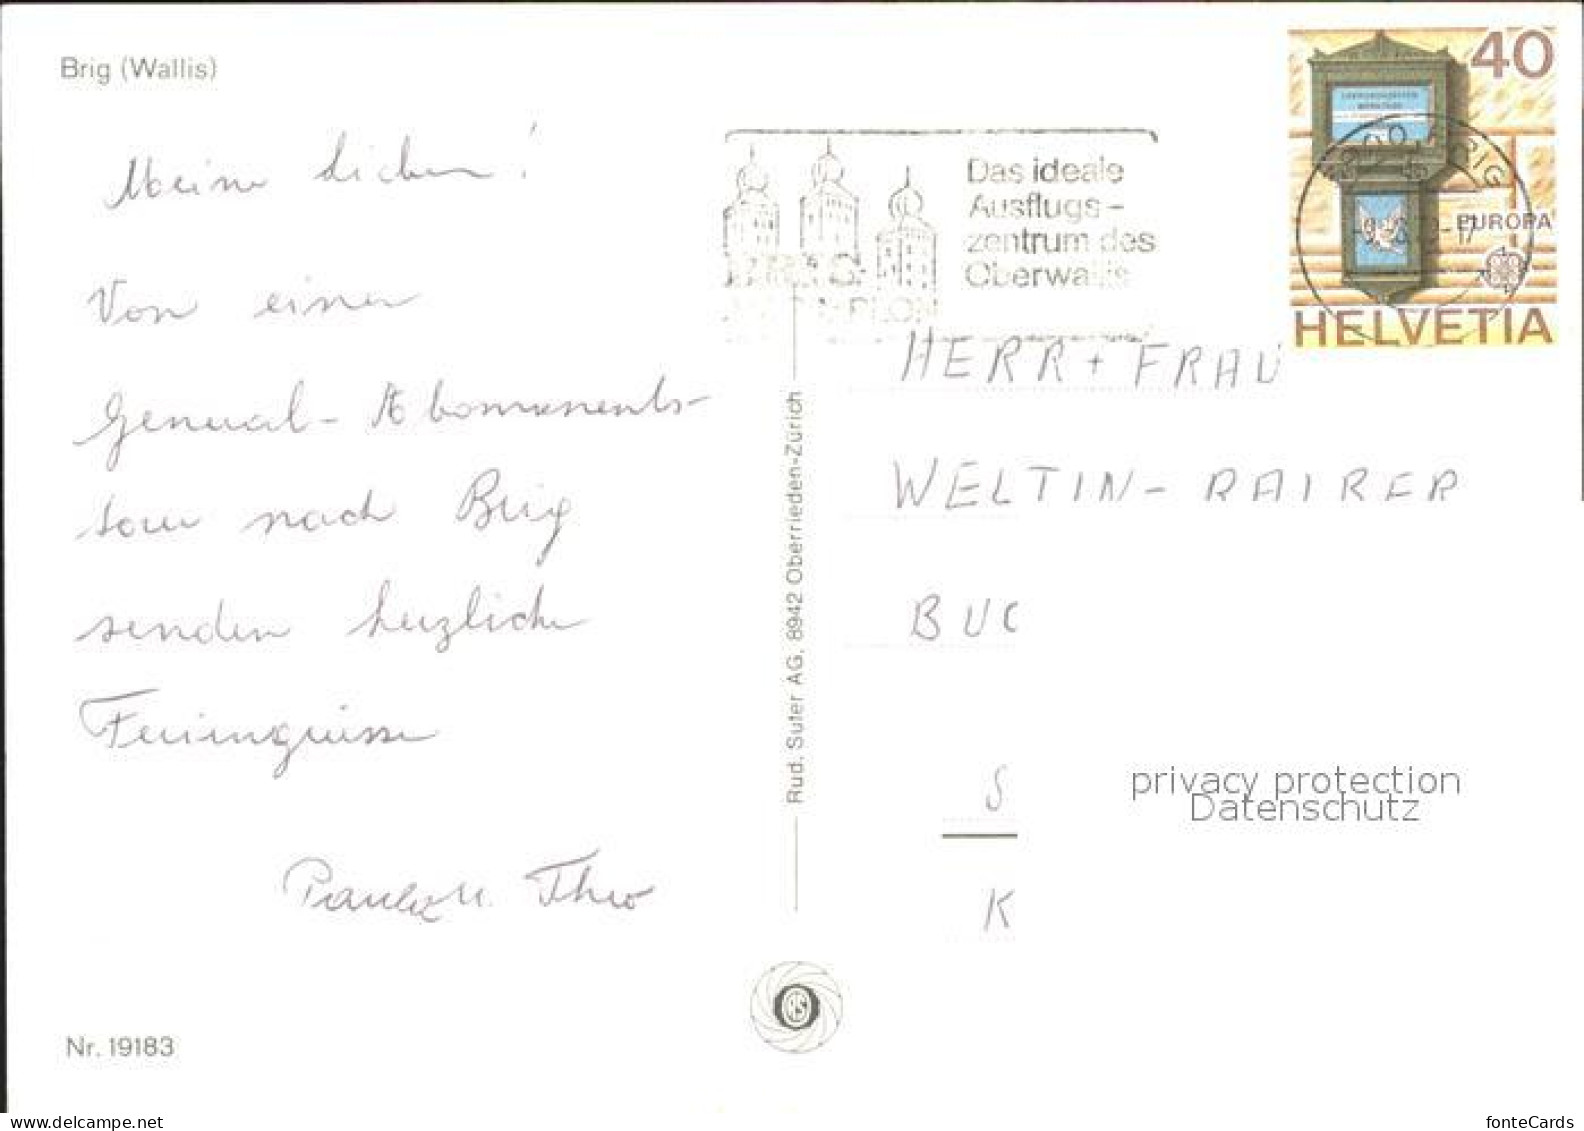 Brig (Wallis)
Meine Lieben!
Von einer
General-Abonnements-
tour nach Brig
senden herzliche
Feriengrüsse
u. Theo
Nr. 19183
Rud. Suter AG, 8942 Oberrieden-Zürich
Das ideale
Ausflugs-
zentrum des
Oberwallis
BRIG
SIMPLON
40
BRIG
EUROPA
HELVETIA
HERR + FRAU
WELTIN-RAIRER
BUC
S
K
privacy protection
Datenschutz
https://www.delcampe.net
fonteCards